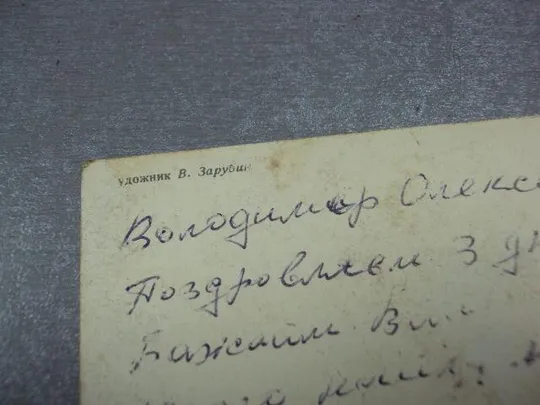 удожник В. Зарубин
Володимир Олекса
Поздровляем з дн
Бажаїм Вам